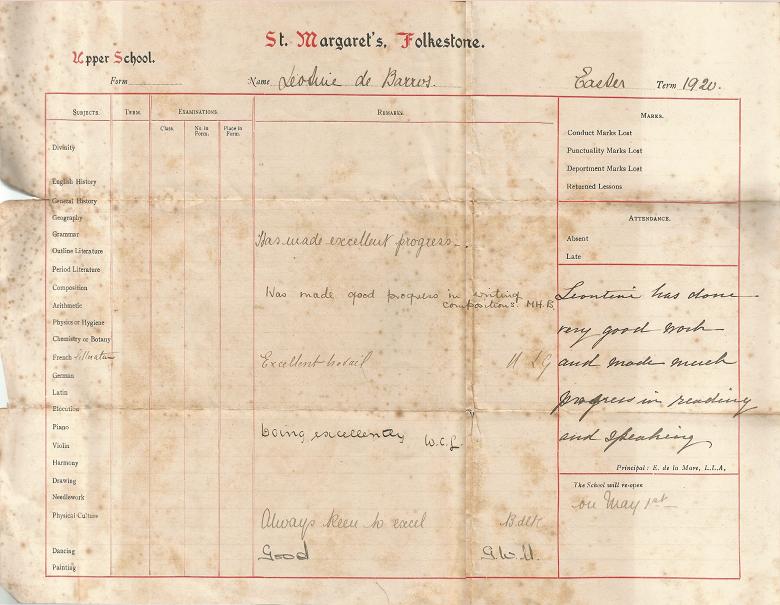 St. Margaret's, Folkestone.
Upper School.
Form
Name Leontine de Barros.
Easter Term 1920.
SUBJECTS.
TERM.
EXAMINATIONS.
Class.
No. in Form.
Place in Form.
REMARKS.
Divinity
English History
General History
Geography
Grammar
Has made excellent progress.
Outline Literature
Period Literature
Composition
Has made good progress in writing
compositions. M.H.B.
Arithmetic
Physics or Hygiene
Chemistry or Botany
French Literature
Excellent
German
Latin
Elocution
Piano
Doing excellently W.C.L.
Violin
Harmony
Drawing
Needlework
Physical Culture
Always keen to excel
Dancing
Good G.W.H.
Painting
MARKS.
Conduct Marks Lost
Punctuality Marks Lost
Deportment Marks Lost
Returned Lessons
ATTENDANCE.
Absent
Late
Leontine has done
very good work
and made much
progress in reading
and speaking
Principal: E. de la Mare, L.L.A.
The School will re-open
on May 1st